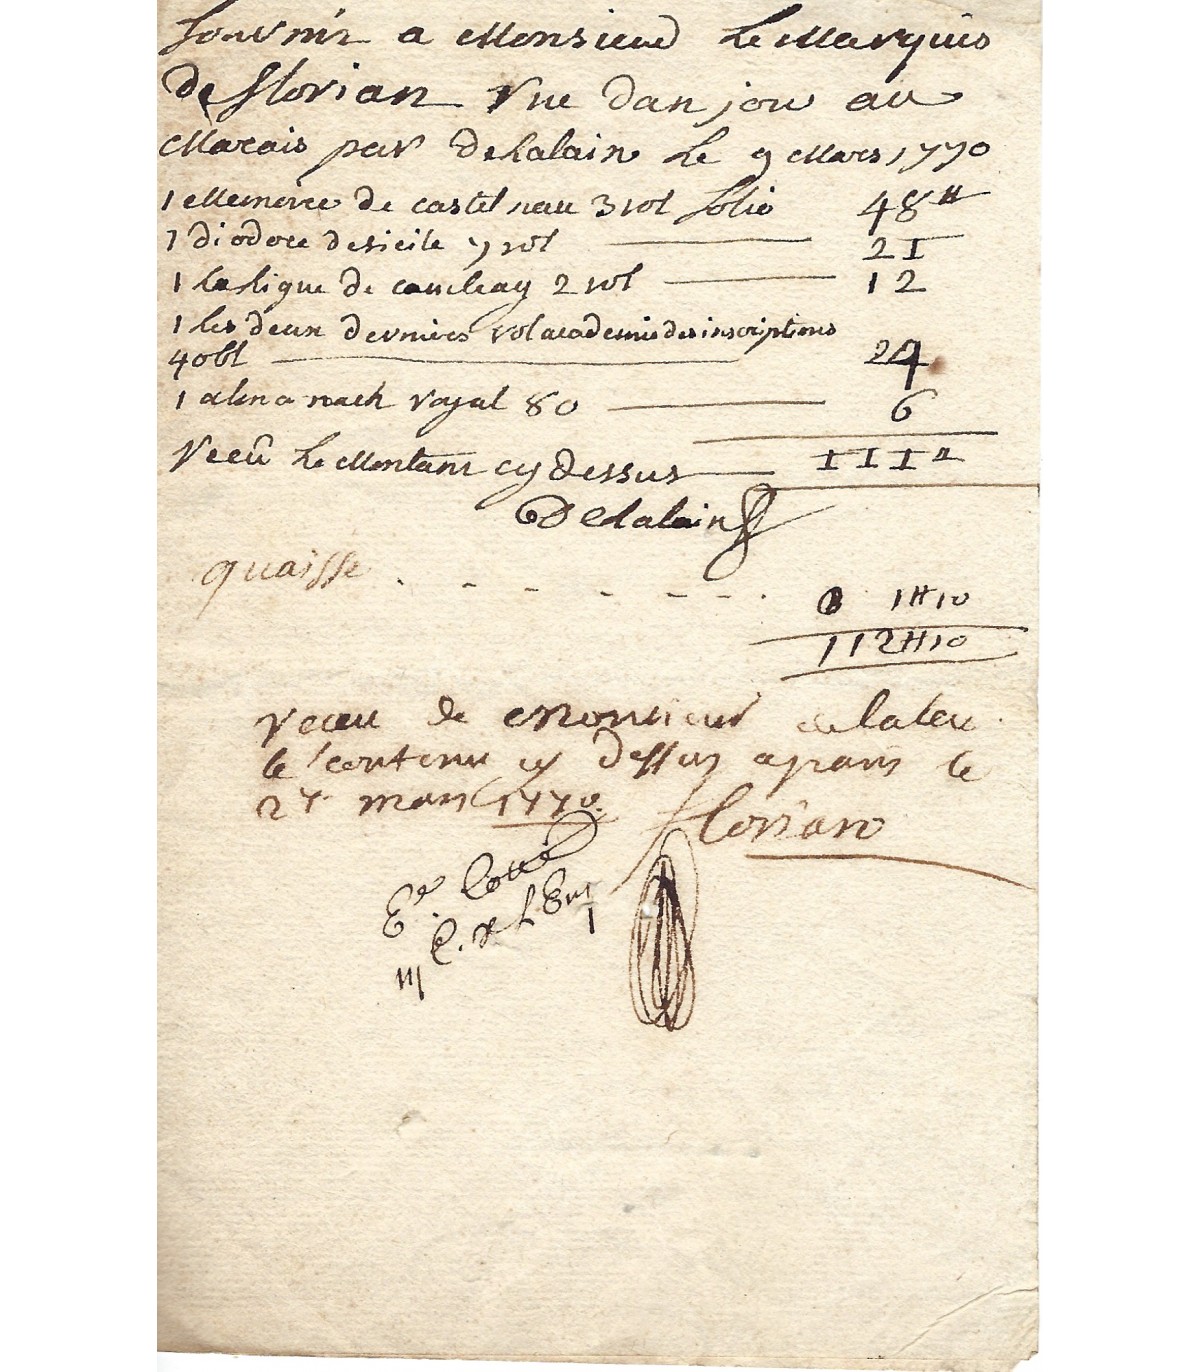 fournir a Monsieur Le Marquis
De florian rue danjou au
Marais par Delalain Le 9 Mars 1770
1 Memoire de castelnau 3 vol folio 48#
1 diodore desicile 7 vol 21
1 la ligue de cambray 2 vol 12
1 les deux dernieres vol academie des inscriptions
4o bl 24
1 almanach royal 8o 6
receu Le Montant cy Dessus 111#
Delalain
quaisse 1#10
112#10
receu de monsieur
le contenu cy dessus a paris le
27 mars 1770. florian